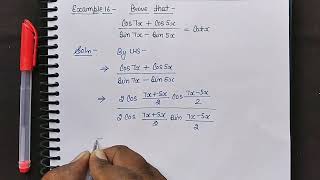 Example 16 - Prove that -
Cos 7x + Cos 5x
Sin 7x - Sin 5x
= Cot x
Soln - By LHS -
Cos 7x + Cos 5x
Sin 7x - Sin 5x
→ 2 Cos (7x+5x)/2 Cos (7x-5x)/2
2 Cos (7x+5x)/2 Sin (7x-5x)/2